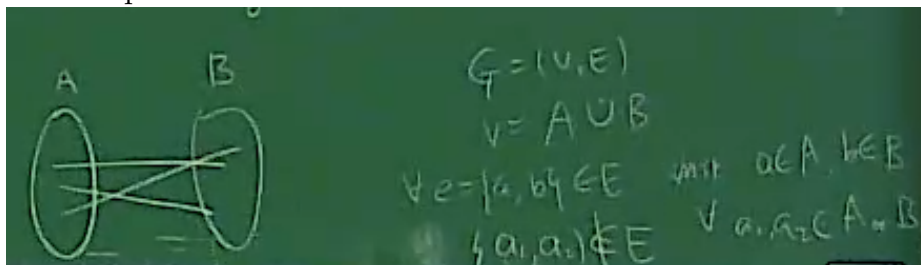 A B
G = (V, E)
V = A ∪ B
∀ e = {a, b} ∈ E mit a ∈ A, b ∈ B
{a₁, a₂} ∉ E ∀ a₁, a₂ ∈ A ∨ B